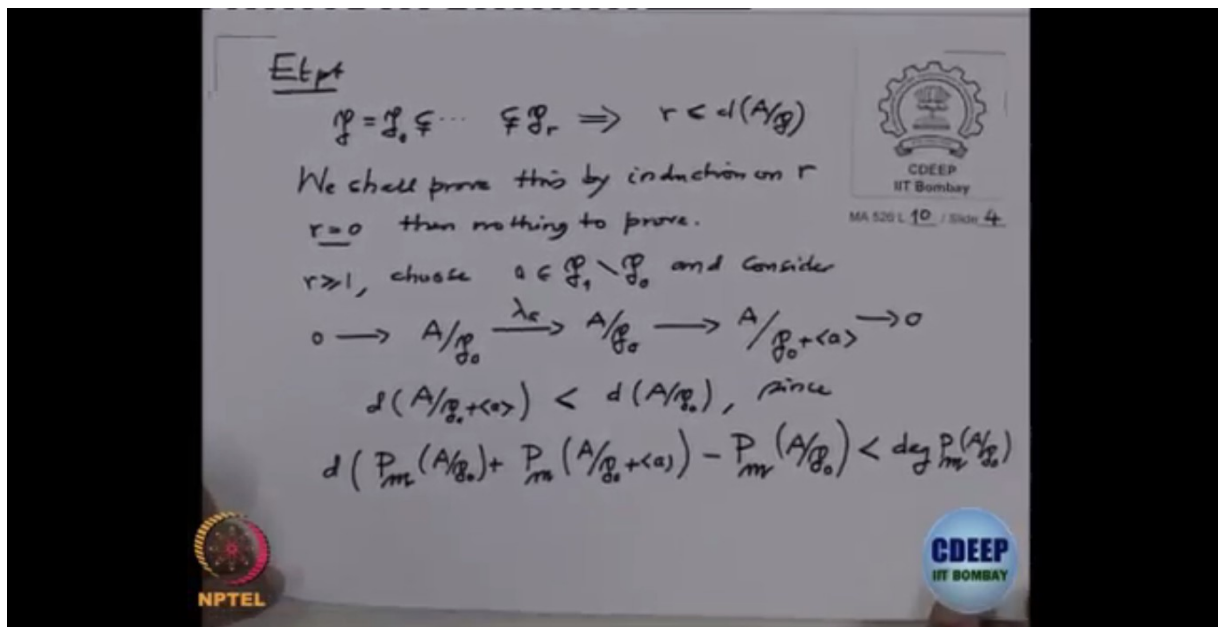 Etpt
𝔭 = 𝔭₀ ⊊ ··· ⊊ 𝔭ᵣ ⟹ r < d(A/𝔭)
We shall prove this by induction on r
r=0 then nothing to prove.
r⩾1, choose a ∈ 𝔭₁ \ 𝔭₀ and consider
0 → A/𝔭₀ —λₐ→ A/𝔭₀ → A/𝔭₀+<a> → 0
d(A/𝔭₀+<a>) < d(A/𝔭₀), since
d(P_𝔪(A/𝔭₀) + P_𝔪(A/𝔭₀+<a>) − P_𝔪(A/𝔭₀) < deg P_𝔪(A/𝔭₀)
CDEEP
IIT Bombay
MA 526 L 10 / Slide 4
NPTEL
CDEEP
IIT BOMBAY